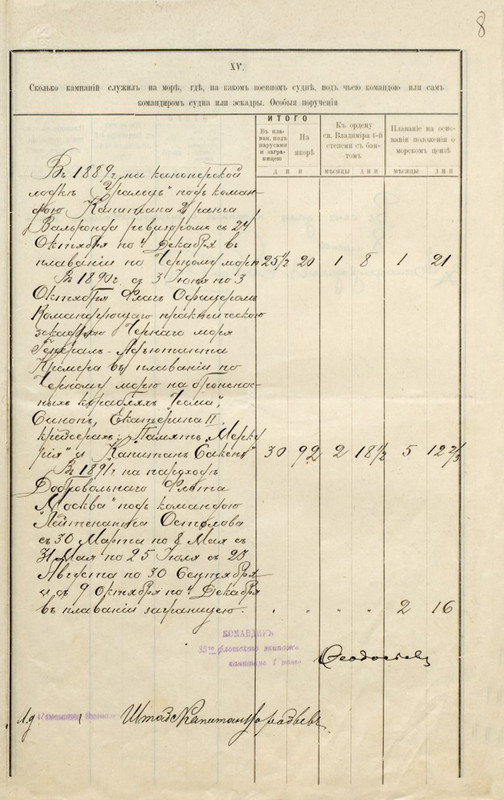 8
XV.
Сколько кампаній служилъ на морѣ, гдѣ, на какомъ военномъ суднѣ, подъ чьею командою или самъ
командиромъ судна или эскадры. Особыя порученія
ИТОГО
Въ пла-
ваніи подъ
парусами
и загра-
ницею
На
якорѣ
дни
Къ ордену
св. Владиміра 4-й
степени съ бан-
томъ
мѣсяцы дни
Плаваніе на осно-
ваніи положенія о
морскомъ цензѣ
мѣсяцы дни
Въ 1889 г. на канонерской
лодкѣ "Уралецъ" подъ коман-
дою Капитана 2 ранга
ревизоромъ съ 24
Октября по 4 Декабря въ
плаваніи по Черному морю 25½ 20 1 8 1 21
Въ 1890 г. съ 3 Іюня по 3
Октября Флагъ Офицеромъ
Командующаго практическою
эскадрою Чернаго моря
Генералъ-Адъютанта
Кремера въ плаваніи по
Черному морю на броненос-
ныхъ корабляхъ "Чесма",
Синопъ, Екатерина II,
крейсерахъ: "Память Мерку-
рія" и "Капитанъ Сакенъ" 30 92 2 18½ 5 12⅔
Въ 1891 г. на пароходѣ
Добровольнаго Флота
"Москва" подъ командою
Лейтенанта
съ 30 Марта по 8 Мая съ
31 Мая по 25 Іюля съ 23
Августа по 30 Сентября
и съ 9 Октября по 4 Декабря
въ плаваніи заграницею. . . . . 2 16
КОМАНДИРЪ
флотскаго экипажа
капитанъ I ранга
И. д.
Штабс-Капитанъ